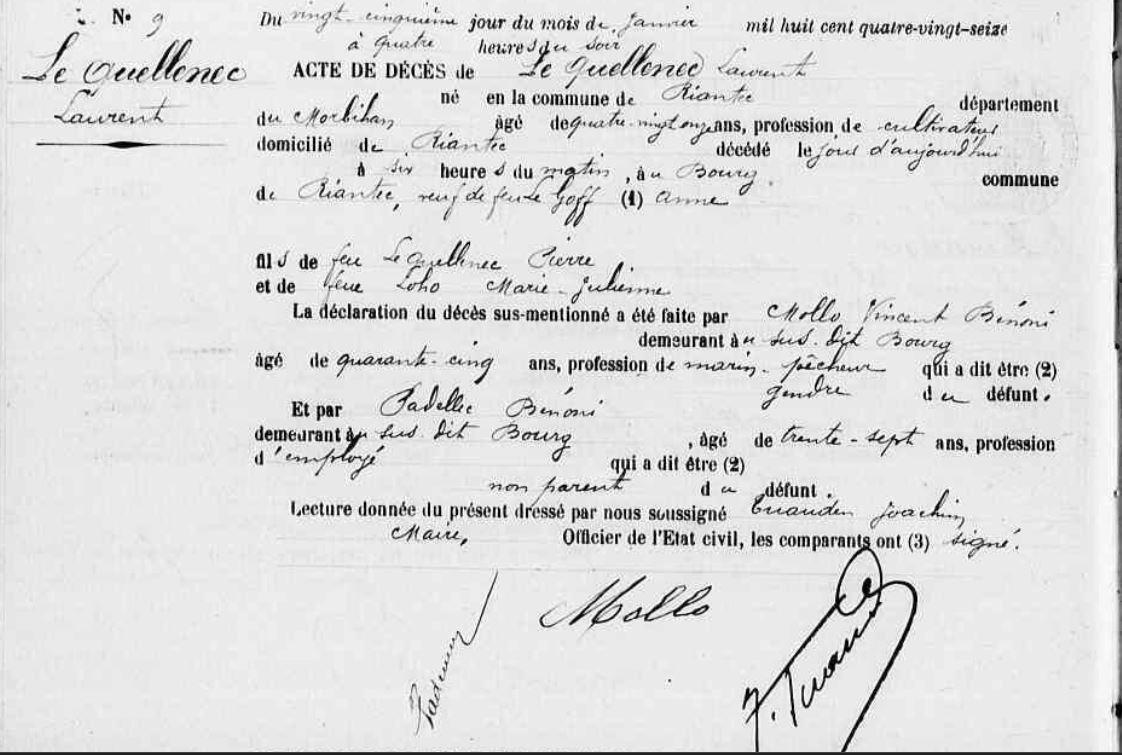 N° 9
Le Quellenec
Laurent
Du vingt-cinquième jour du mois de Janvier mil huit cent quatre-vingt-seize
à quatre heures du soir
ACTE DE DÉCÈS de Le Quellenec Laurent
né en la commune de Riantec département
du Morbihan âgé de quatre-vingt onze ans, profession de cultivateur
domicilié de Riantec décédé le jour d'aujourd'hui
à six heures du matin, au Bourg commune
de Riantec, veuf de feue Le Goff (1) Anne
fils de feu Le Quellenec Pierre
et de feue Loho Marie-Julienne
La déclaration du décès sus-mentionné a été faite par Mollo Vincent Bénoni
demeurant au sus-dit Bourg
âgé de quarante-cinq ans, profession de marin-pêcheur qui a dit être (2)
gendre du défunt.
Et par Padellec Bénoni
demeurant au sus-dit Bourg, âgé de trente-sept ans, profession
d'employé qui a dit être (2)
non parent du défunt.
Lecture donnée du présent dressé par nous soussigné Joachim
Maire, Officier de l'Etat civil, les comparants ont (3) signé.
Mollo